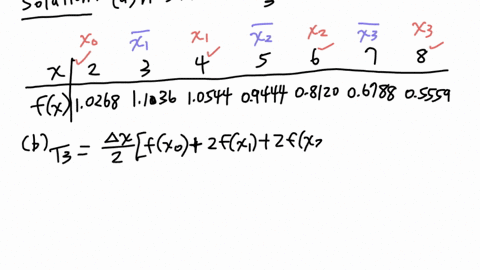 Solution: (a)
x₀ x̅₁ x₁ x̅₂ x₂ x̅₃ x₃
x 2 3 4 5 6 7 8
f(x) 1.0268 1.1036 1.0544 0.9444 0.8120 0.6788 0.5559
(b) T₃ = Δx/2 [f(x₀)+2f(x₁)+2f(x₂